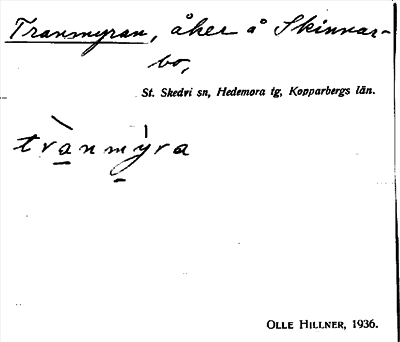 Tranmyran, åker å Skinnar-
bo,
St. Skedvi sn, Hedemora tg, Kopparbergs län.
trànmýra
OLLE HILLNER, 1936.